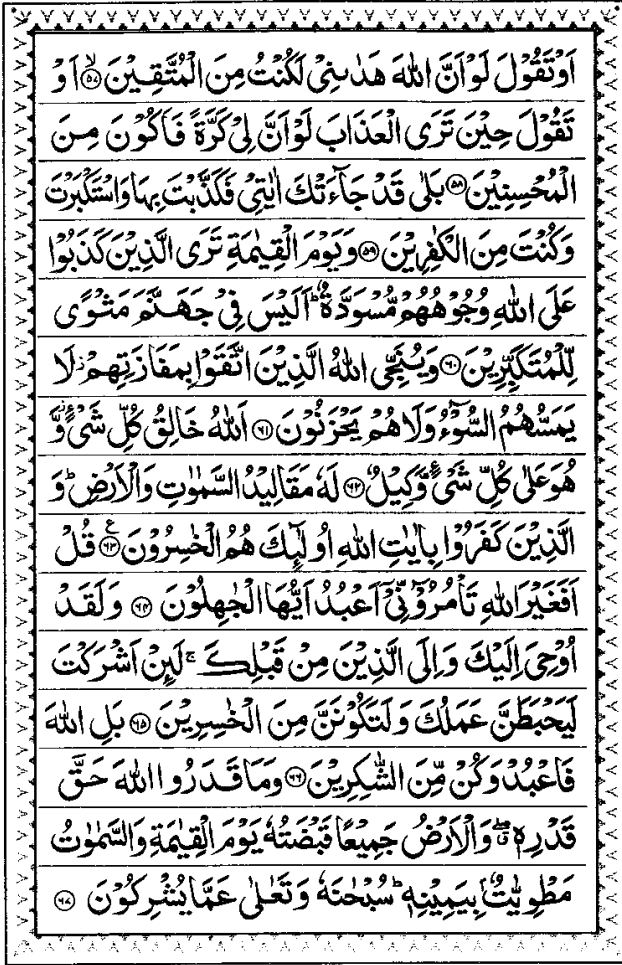 اَوْ تَقُوْلَ لَوْ اَنَّ اللّٰهَ هَدٰىنِيْ لَكُنْتُ مِنَ الْمُتَّقِيْنَ ۙ﴿۵۷﴾ اَوْ
تَقُوْلَ حِيْنَ تَرَى الْعَذَابَ لَوْ اَنَّ لِيْ كَرَّةً فَاَكُوْنَ مِنَ
الْمُحْسِنِيْنَ ﴿۵۸﴾ بَلٰى قَدْ جَآءَتْكَ اٰيٰتِيْ فَكَذَّبْتَ بِهَا وَاسْتَكْبَرْتَ
وَكُنْتَ مِنَ الْكٰفِرِيْنَ ﴿۵۹﴾ وَيَوْمَ الْقِيٰمَةِ تَرَى الَّذِيْنَ كَذَبُوْا
عَلَى اللّٰهِ وُجُوْهُهُمْ مُّسْوَدَّةٌ ؕ اَلَيْسَ فِيْ جَهَنَّمَ مَثْوًى
لِّلْمُتَكَبِّرِيْنَ ﴿۶۰﴾ وَيُنَجِّي اللّٰهُ الَّذِيْنَ اتَّقَوْا بِمَفَازَتِهِمْ ؗ لَا
يَمَسُّهُمُ السُّوْٓءُ وَلَا هُمْ يَحْزَنُوْنَ ﴿۶۱﴾ اَللّٰهُ خَالِقُ كُلِّ شَيْءٍ ؗ وَّ
هُوَ عَلٰى كُلِّ شَيْءٍ وَّكِيْلٌ ﴿۶۲﴾ لَهٗ مَقَالِيْدُ السَّمٰوٰتِ وَالْاَرْضِ ؕ وَ
الَّذِيْنَ كَفَرُوْا بِاٰيٰتِ اللّٰهِ اُولٰٓئِكَ هُمُ الْخٰسِرُوْنَ ﴿۶۳﴾ ع قُلْ
اَفَغَيْرَ اللّٰهِ تَاْمُرُوْٓنِّيْٓ اَعْبُدُ اَيُّهَا الْجٰهِلُوْنَ ﴿۶۴﴾ وَلَقَدْ
اُوْحِيَ اِلَيْكَ وَاِلَى الَّذِيْنَ مِنْ قَبْلِكَ ۚ لَئِنْ اَشْرَكْتَ
لَيَحْبَطَنَّ عَمَلُكَ وَلَتَكُوْنَنَّ مِنَ الْخٰسِرِيْنَ ﴿۶۵﴾ بَلِ اللّٰهَ
فَاعْبُدْ وَكُنْ مِّنَ الشّٰكِرِيْنَ ﴿۶۶﴾ وَمَا قَدَرُوا اللّٰهَ حَقَّ
قَدْرِهٖ ۖ وَالْاَرْضُ جَمِيْعًا قَبْضَتُهٗ يَوْمَ الْقِيٰمَةِ وَالسَّمٰوٰتُ
مَطْوِيّٰتٌۢ بِيَمِيْنِهٖ ؕ سُبْحٰنَهٗ وَتَعٰلٰى عَمَّا يُشْرِكُوْنَ ﴿۶۷﴾